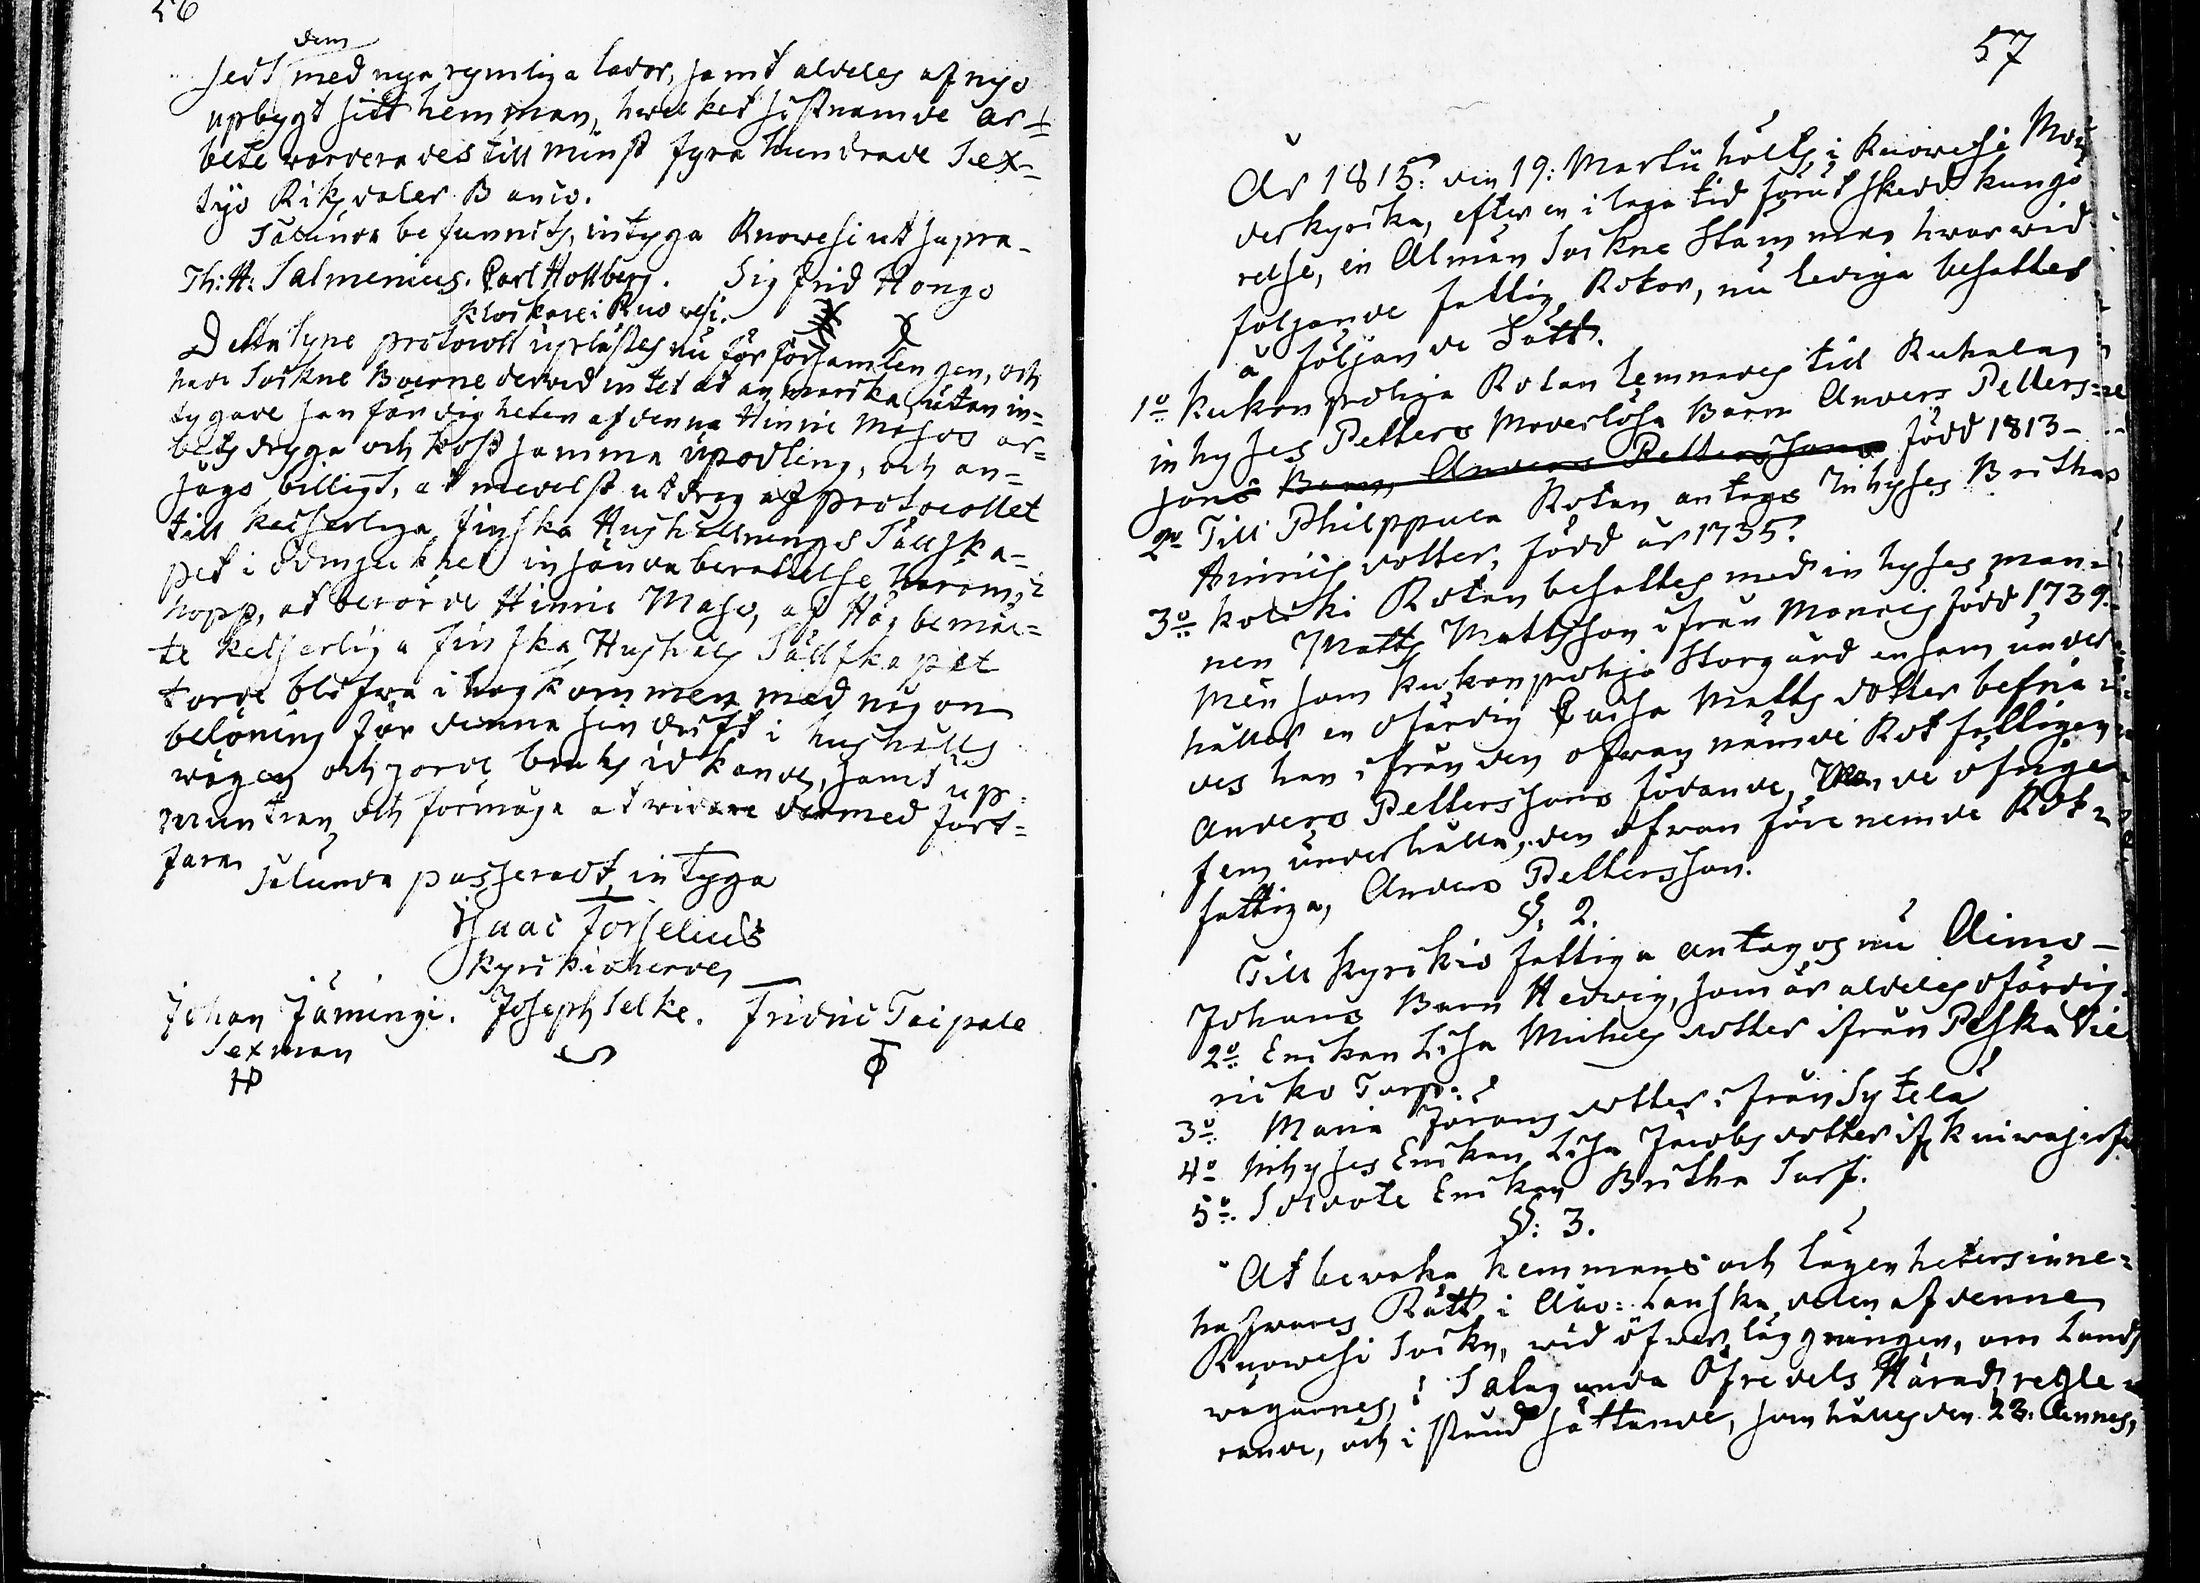 56
dem
sedt med nya rymliga lador, samt aldeles af nyo
upbygt sitt hemman, hwilket sistnämde ar-
bete warderades till minst fyra hundrade Sex-
tijo Riksdaler Banco.
Sålunda befunnits, intyga Ruowesi ut supra
Th: H: Salmenius. Carl Hollberg. Sigfrid Hongo
klockare i Ruowesi.
Detta Syne protocoll uplästes nu för församlengen, och
hade Sockne Boerne derwed intet at anmärka, utan in-
tygade sanfärdigheten af denna Hinric Mahos ar-
bets dryga och kostsamma upodling, och an-
sågo billigt, at medelst utdrag af protocollet
till Keiserliga Finska Hushållnings Sällska-
pet i ödmjukhet insända berättelse härom, i
hopp, at berörde Hinric Maho, af Högbemäl-
te Keiserliga Finska Hushåls Sällskapet
torde blifwa ihogkommen med någon
belöning för denna sin drift i hushålls
wägen och jorde bruks idkande, samt up-
muntran och förmåga at widare dermed fort-
fara.
Sålunda passeradt, intyga
Isaac Forselius
Kyrckioherde
Johan Jämingi. Joseph Selke. Fridric Taipale
Sexman
57
År 1815: den 19: Martii hölts i Ruowesi Mo-
derkyrcka, efter en i laga tid förut skedd kungö-
relse, en Almän Sockne Stämma, hwarwid
följande fattig Rotor, nu lediga besattes
å följande Sätt.
1o Kukonpohja Rotan lemnades till Ruhala
inhyses Petters Moderlösa Barn Anders Petters-
sons Barn, Anders Petterssons född 1813-
2o Till Philppula Rotan antogs Inhyses Britha
Hinrics dotter, född år 1735.
3o Kolcki Rotan besattes med inhyses man-
nen Matts Mattsson ifrån Monois född 1739.
Men som Kukonpohja Storgård ensam under
håller en ofärdig Caisa Matts dotter befria-
des han ifrån den ofwan nämde Rot fattigen
Anders Petterssons födande, Men de öfrige
fem underhålla, den ofwan före nemde Rot-
fattiga, Anders Pettersson.
§: 2.
Till kyrckio fattiga antogos nu Aimo-
Johans Barn Hedwig, som är aldeles ofärdig.
2o Enckan Lisa Michels dotter ifrån Peska Vie
ricko Torp:
3o Maria Jörans dotter ifrån Sytelä
4o Inhyses Enckan Lisa Jacobs dotter ifr
5o Soldate Enckan Britha Turf.
§: 3.
At bewaka hemmans och lägenhetersinne-
hafwares Rätt i Åbo: Länska delen af denne
Ruowesi Sockn, wid öfwerläggningen, om Lands
wägarnes, i Satagunda Öfredels Härads regle-
rande, och i stånd sättande, som hålles den 23. Annes,